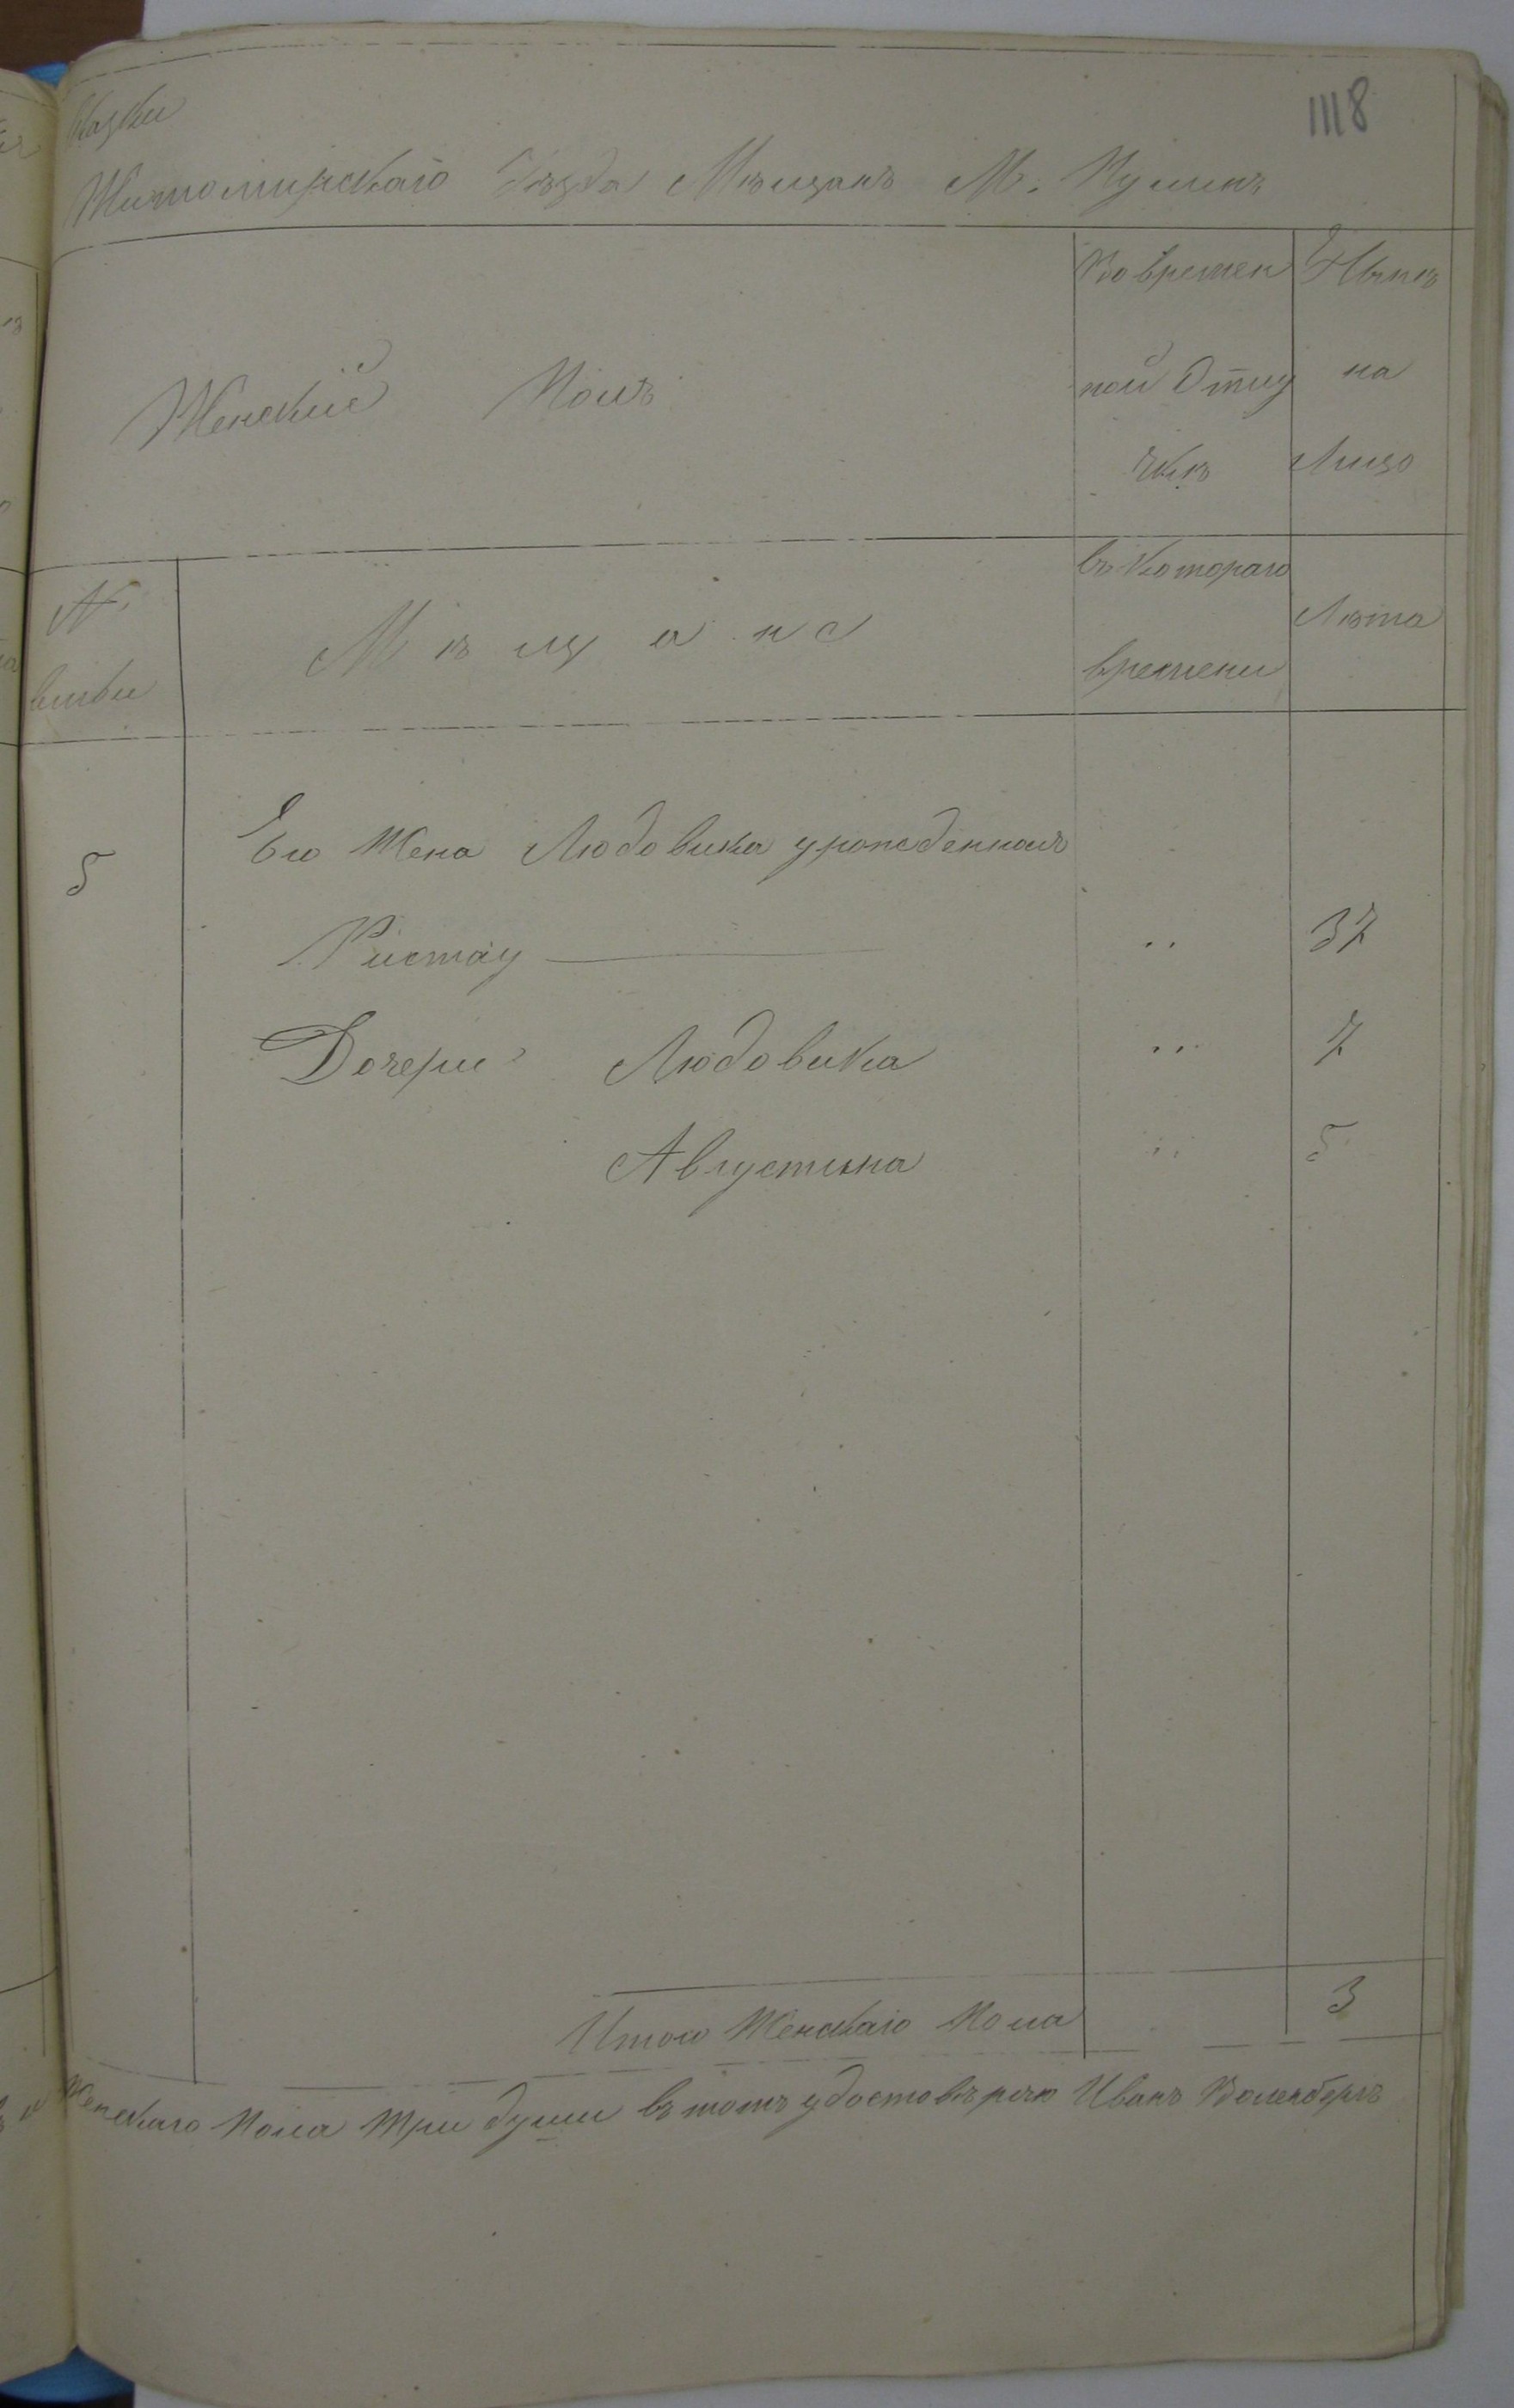 1118
сказки
Житомирскаго Уѣзда Мѣщанъ М. Пулинъ
Женскій Полъ
Во времен
ной Отлу
чкѣ
Нынѣ
на
Лицо
№
семьи
Мѣщане
съ котораго
времени
Лѣта
5 Его Жена Людовика урожденная
Ристау ,, 37
Дочери Людовика ,, 7
Августина ,, 5
Итого Женскаго Пола 3
Женскаго Пола Три души въ томъ удостовѣряю Иванъ Воленбергъ